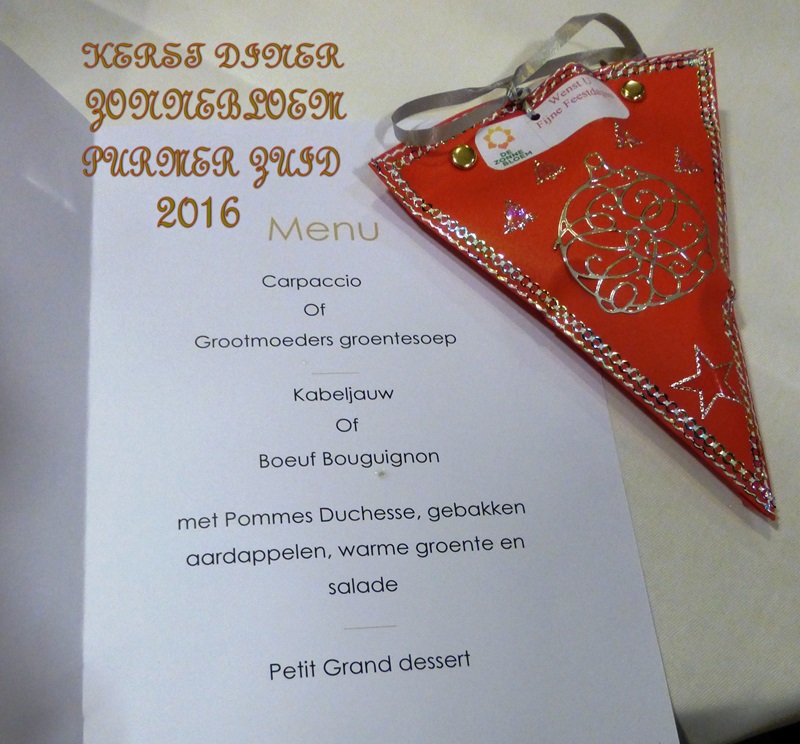 KERST DINER
ZONNEBLOEM
PURMER ZUID
2016
Menu
Carpaccio
Of
Grootmoeders groentesoep
Kabeljauw
Of
Boeuf Bouguignon
met Pommes Duchesse, gebakken
aardappelen, warme groente en
salade
Petit Grand dessert
DE
ZONNE
BLOEM
Wenst U
Fijne Feestdagen